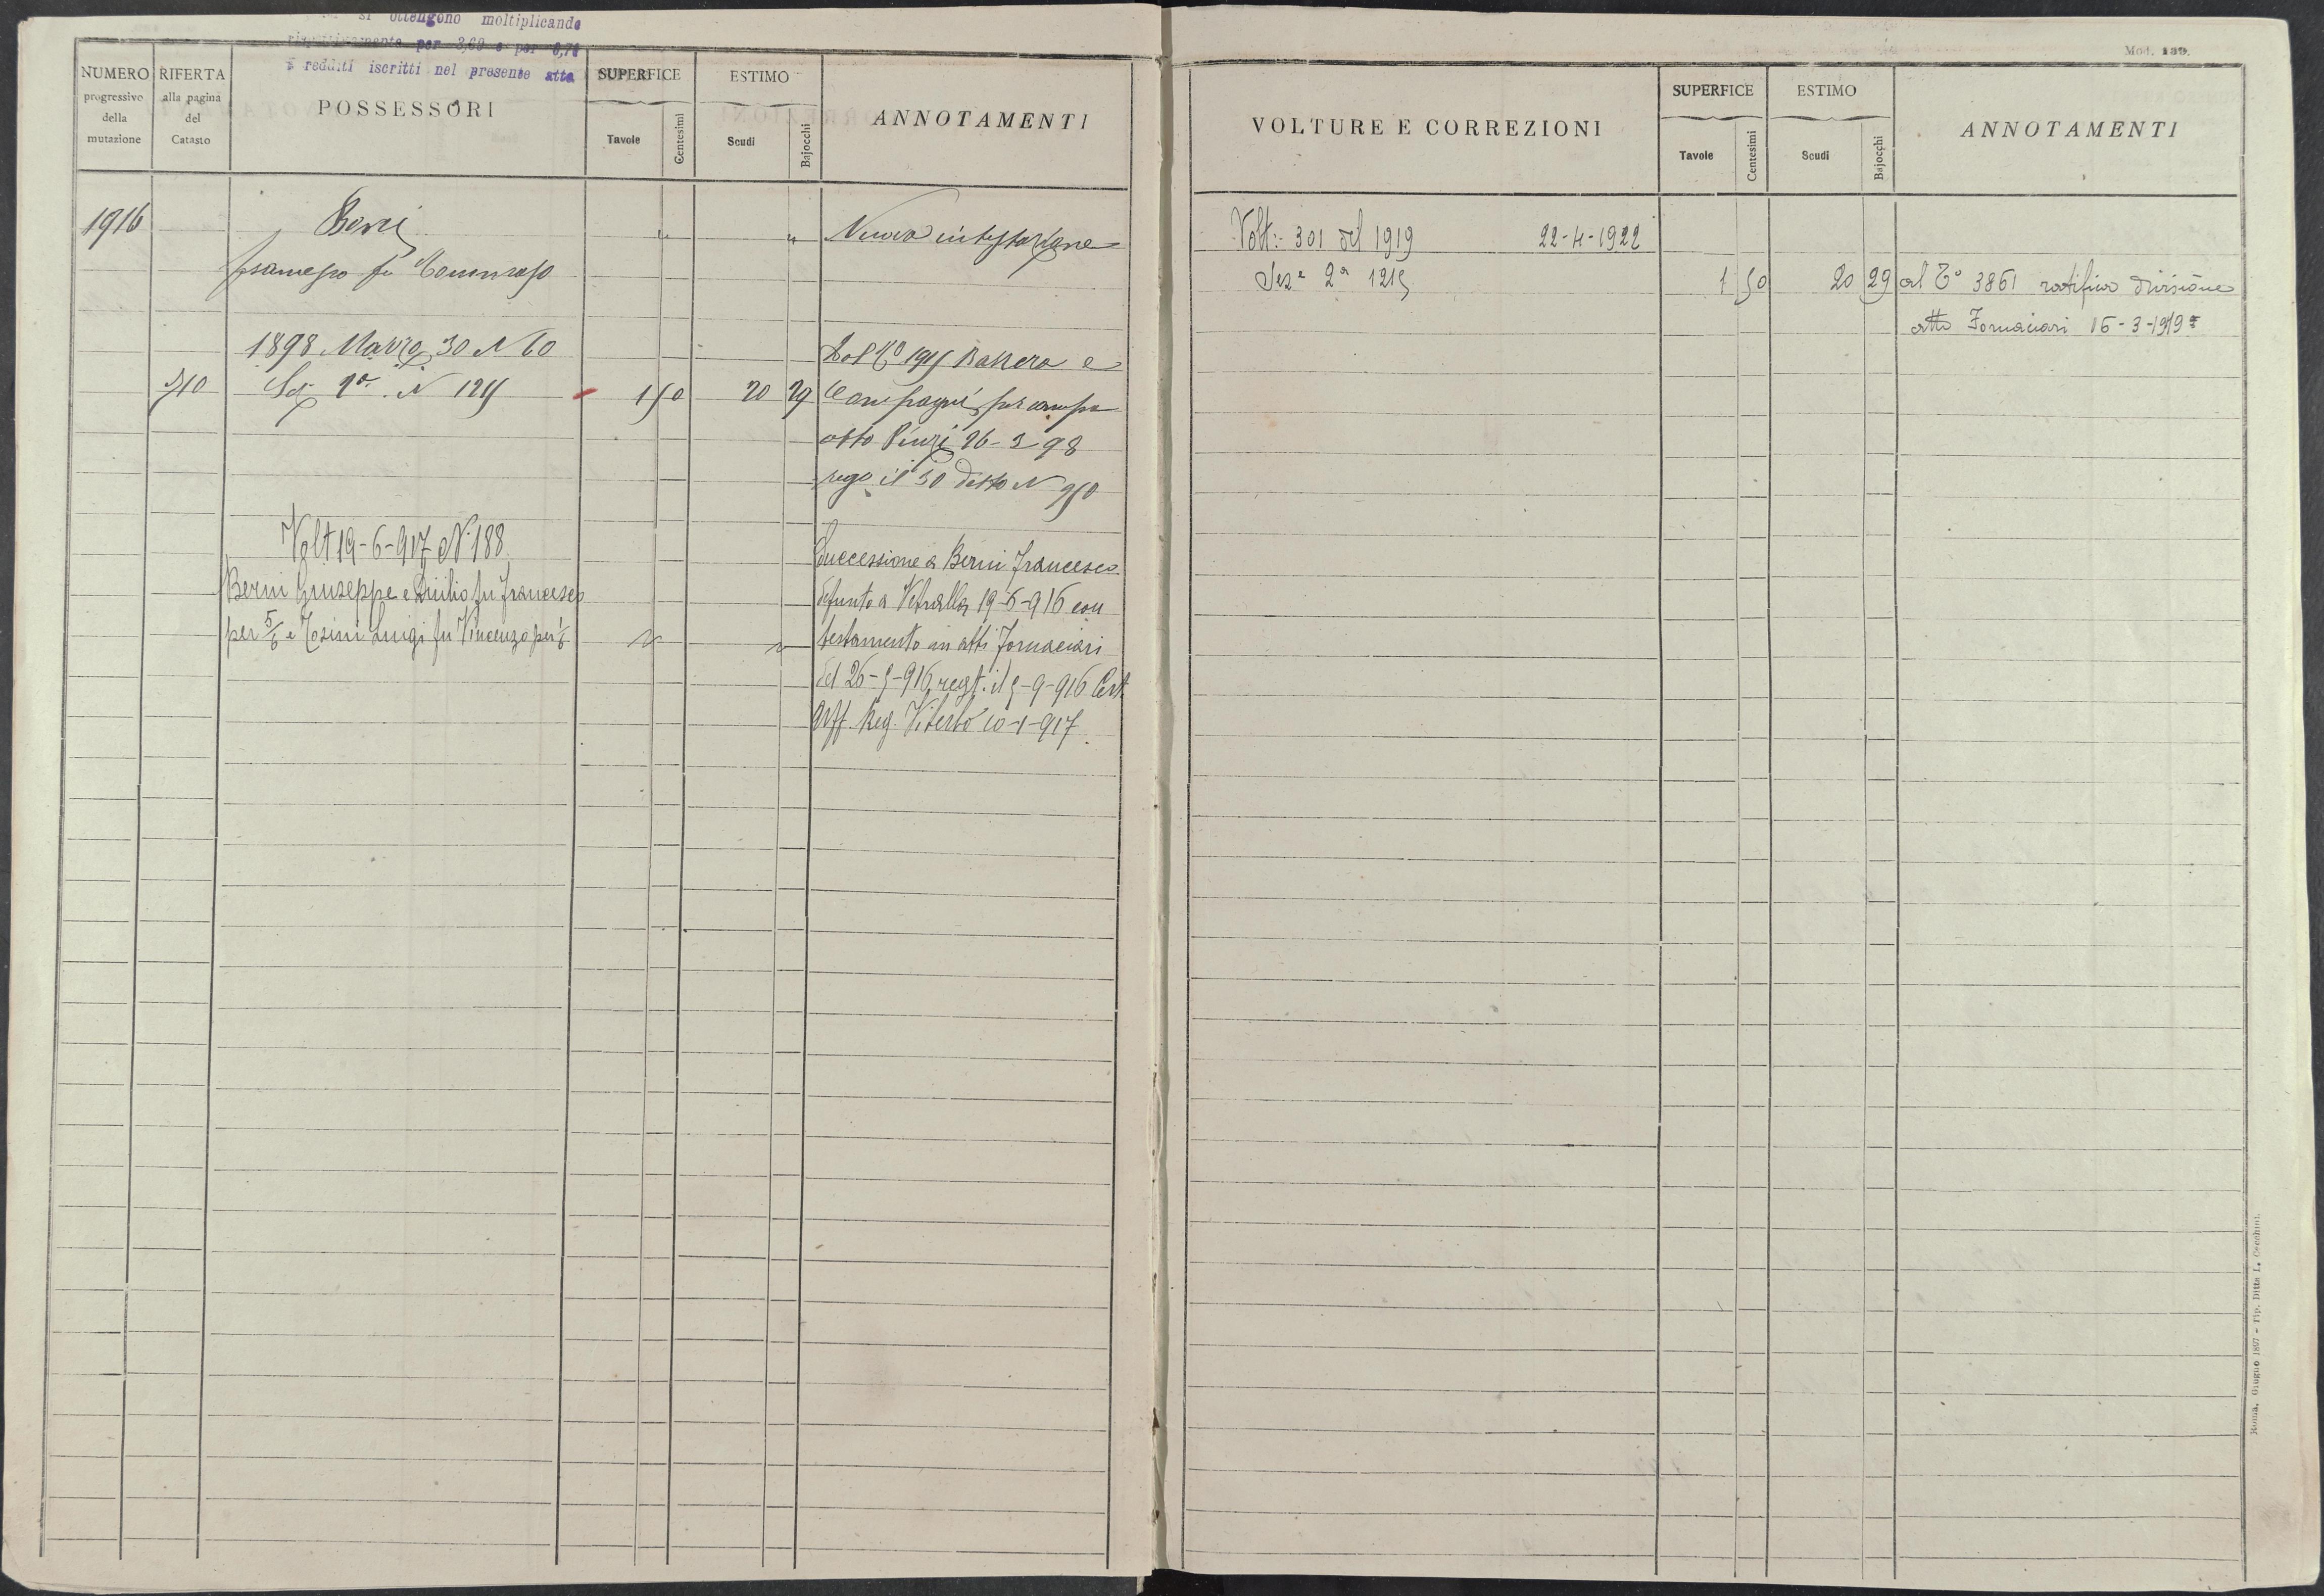 si ottengono moltiplicando
rispettivamente per 3,60 e per 6,71
i redditi iscritti nel presente atto
NUMERO progressivo della mutazione
RIFERTA alla pagina del Catasto
POSSESSORI
SUPERFICE
Tavole Centesimi
ESTIMO
Scudi Bajocchi
ANNOTAMENTI
1916 Berni " " Nuova intestazione
Francesco fu Tommaso
1898 Marzo 30 N 60 Dal 1915 e
710 Sez 2a. N 1215 1 50 20 29 Compagni per compra
atto Pinzi 26-3-98
rego il 30 detto N 950
Volt 19-6-917 N. 188
Successione a Berni Francesco
Berni Giuseppe e Duilio fu Francesco
defunto a Vetralla 19-6-916 con
per 5/6 e Tosini Luigi fu Vincenzo per 1/6
testamento in atti Fornaciari
del 26-5-916 regt. il 5-9-916 Cert.
Uff. Reg. Viterbo 10-1-917
Mod. 139.
VOLTURE E CORREZIONI
SUPERFICE
Tavole Centesimi
ESTIMO
Scudi Bajocchi
ANNOTAMENTI
Volt: 301 del 1919 22-4-1922
Seze 2a 1215 1 50 20 29 al To 3861 ratifica divisione
atto Fornaciari 16-3-1919
Roma, Giugno 1897 - Tip. Ditta L. Cecchini.